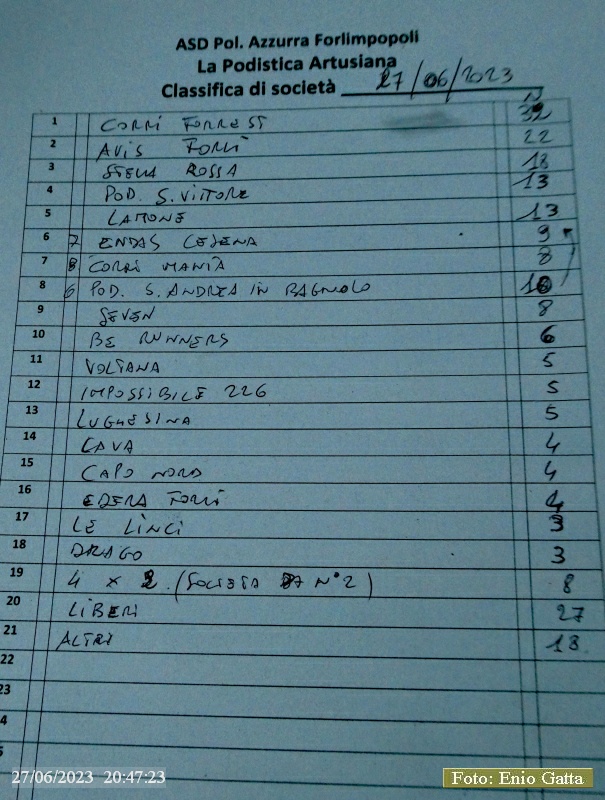 ASD Pol. Azzurra Forlimpopoli
La Podistica Artusiana
Classifica di società 27/06/2023
1 CORRI FORREST
2 AVIS FORLÌ 22
3 STELLA ROSSA 18
4 POD. S. VITTORE 13
5 LAMONE 13
6 7 ENDAS CESENA 9
7 8 CORRI MANIA 8
8 6 POD. S. ANDREA IN BAGNOLO 10
9 SEVEN 8
10 BE RUNNERS 6
11 VOLTANA 5
12 IMPOSSIBILE 226 5
13 LUGHESINA 5
14 CAVA 4
15 CAPO NORD 4
16 EDERA FORLÌ 4
17 LE LINCI 3
18 DRAGO 3
19 4 x 2 (SOCIETÀ N° 2) 8
20 LIBERI 27
21 ALTRI 18
22
23
4
5
27/06/2023 20:47:23
Foto: Enio Gatta